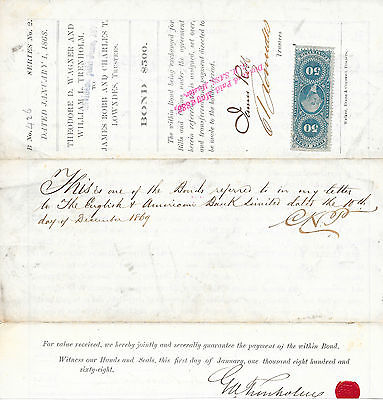 SERIES No. 2.
DATED JANUARY 1, 1868.
THEODORE D. WAGNER AND
WILLIAM L. TRENHOLM,
TO
JAMES ROBB AND CHARLES T.
LOWNDES, TRUSTEES.
BOND $500.
The within Bond being exchanged for
Bills and under the agreement
herein referred to is assigned, set over,
and transferred and payment directed to
be made to the holder.
James Robb
Trustees
50
50
This is one of the Bonds referred to in my letter
to The English & American Bank Limited dated the 10th
day of December 1869
For value received, we hereby jointly and severally guarantee the payment of the within Bond.
Witness our Hands and Seals, this first day of January, one thousand eight hundred and
sixty-eight.